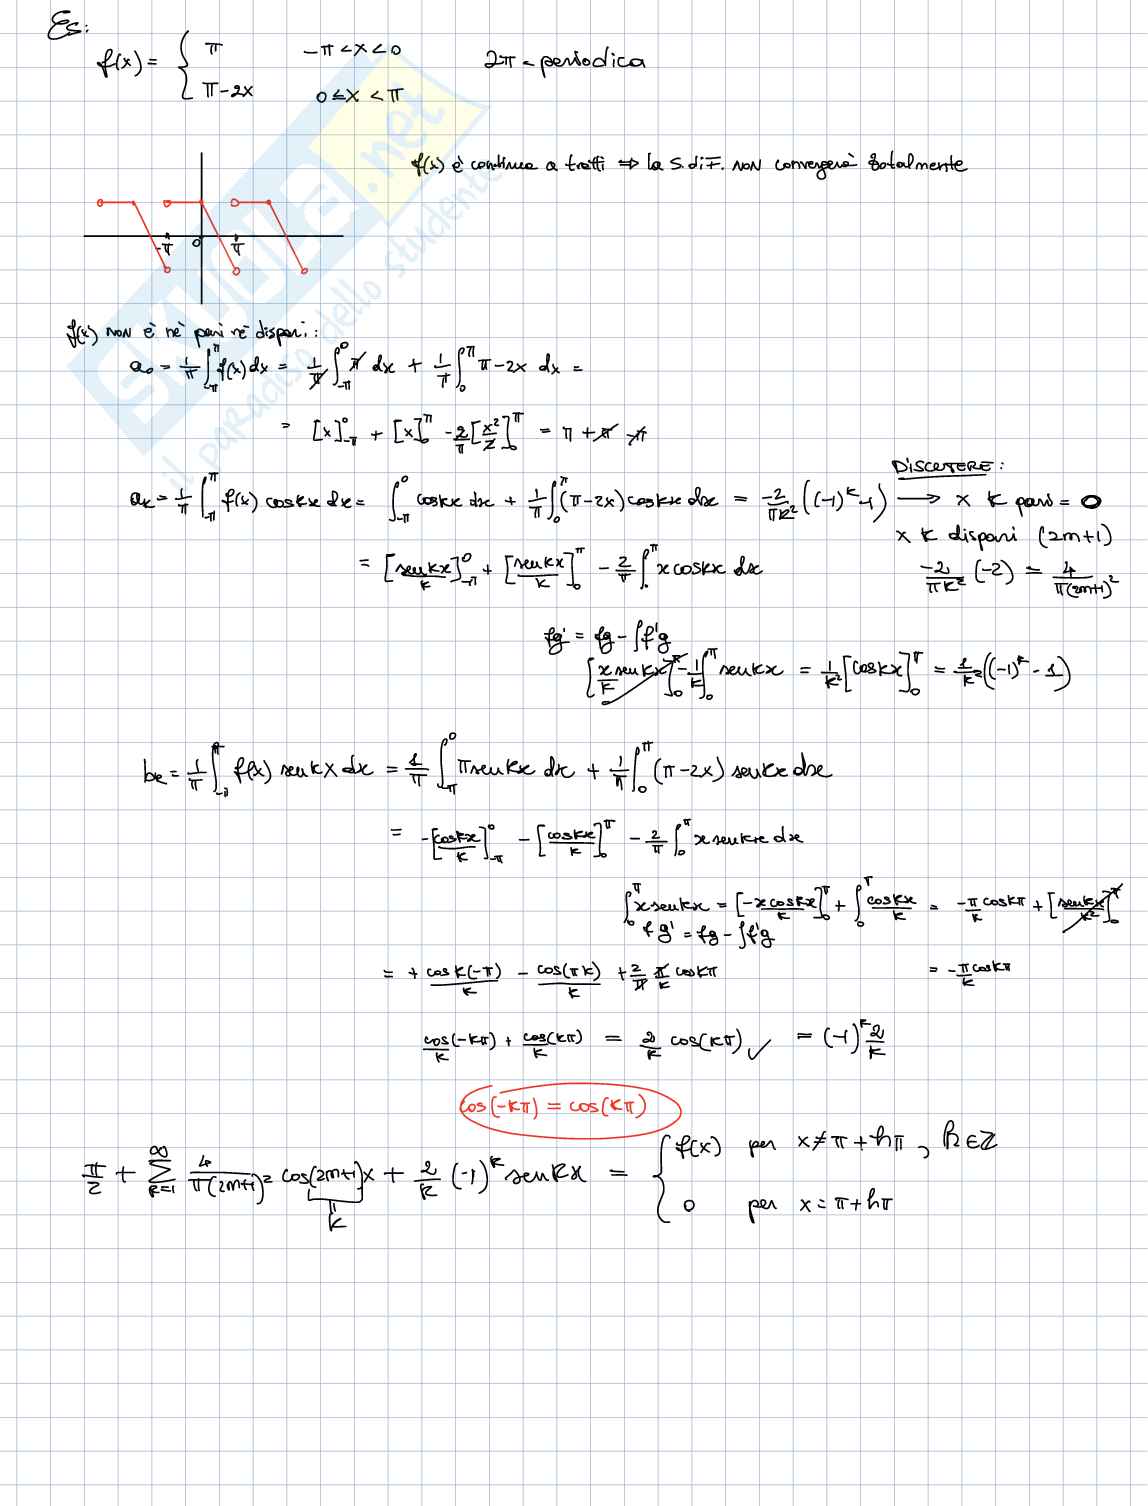 Es:
f(x) = { π    -π < x < 0    2π-periodica
π-2x    0 ≤ x < π
f(x) è continua a tratti ⇒ la S. di F. non convergerà totalmente
-π 0 π
f(x) non è nè pari nè dispari:
a₀ = 1/π ∫_{-π}^{π} f(x) dx = 1/π ∫_{-π}^{0} π dx + 1/π ∫_{0}^{π} π-2x dx =
= [x]_{-π}^{0} + [x]_{0}^{π} - 2/π [x²/2]_{0}^{π} = π + π - π
DISCUTERE:
a_k = 1/π ∫_{-π}^{π} f(x) cos kx dx = ∫_{-π}^{0} cos kx dx + 1/π ∫_{0}^{π} (π-2x) cos kx dx = -2/(πk²) ((-1)^k - 1) → x k pari = 0
x k dispari (2m+1)
= [sen kx/k]_{-π}^{0} + [sen kx/k]_{0}^{π} - 2/π ∫_{0}^{π} x cos kx dx    -2/(πk²) (-2) = 4/(π(2m+1)²)
fg' = fg - ∫f'g
[x sen kx/k]_{0}^{π} - 1/k ∫_{0}^{π} sen kx = 1/k² [cos kx]_{0}^{π} = 1/k² ((-1)^k - 1)
b_k = 1/π ∫_{-π}^{π} f(x) sen kx dx = 1/π ∫_{-π}^{0} π sen kx dx + 1/π ∫_{0}^{π} (π-2x) sen kx dx
= -[cos kx/k]_{-π}^{0} - [cos kx/k]_{0}^{π} - 2/π ∫_{0}^{π} x sen kx dx
∫_{0}^{π} x sen kx = [-x cos kx/k]_{0}^{π} + ∫_{0}^{π} cos kx/k = -π/k cos kπ + [sen kx/k²]_{0}^{π}
fg' = fg - ∫f'g
= + cos k(-π)/k - cos(πk)/k + 2/π π/k cos kπ    = -π/k cos kπ
cos(-kπ)/k + cos(kπ)/k = 2/k cos(kπ) ✓ = (-1)^k 2/k
cos(-kπ) = cos(kπ)
π/2 + ∑_{k=1}^{∞} 4/(π(2m+1)²) cos(2m+1)x + 2/k (-1)^k sen kx = { f(x) per x ≠ π + hπ, h ∈ ℤ
k
0 per x = π + hπ
SKUOLA.net
il paradiso dello studente